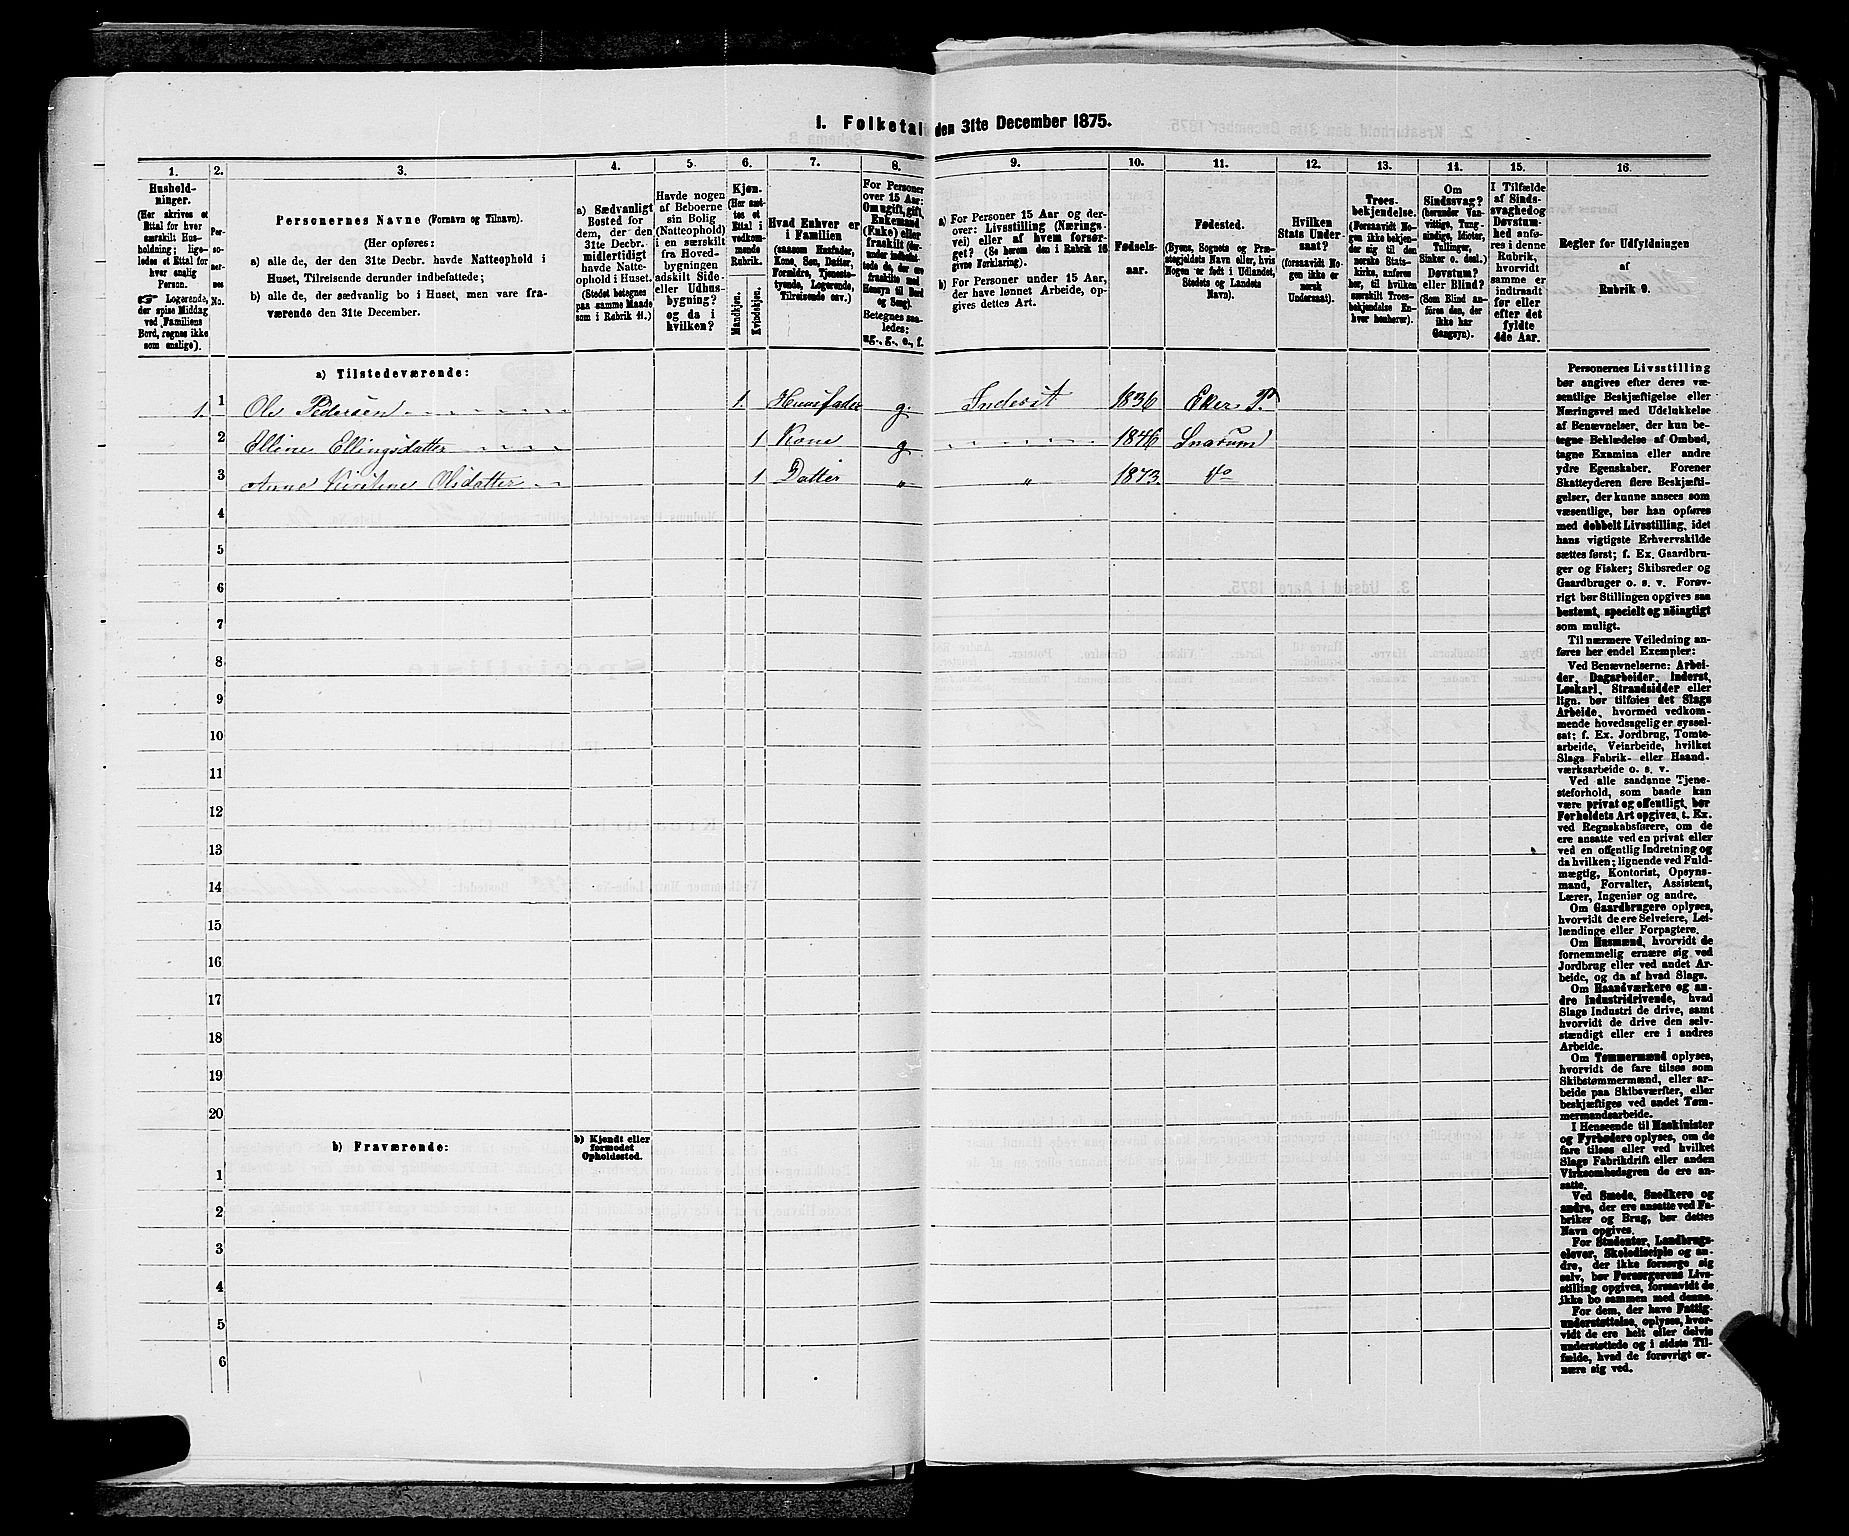 I. Folketal den 31te December 1875.
1. 2. 3. 4. 5. 6. 7. 8. 9. 10. 11. 12. 13. 14. 15. 16.
Hushold-
ninger.
(Her skrives et
Ettal for hver
særskilt Hus-
holdning; lige-
ledes et Ettal for
hver enslig
Person.
☞ Logerende,
der spise Middag
ved Familiens
Bord, regnes ikke
som enslige).
Per-
so-
ner-
nes
No.
Personernes Navne (Fornavn og Tilnavn).
(Her opføres:
a) alle de, der den 31te Decbr. havde Natteophold i
Huset, Tilreisende derunder indbefattede;
b) alle de, der sædvanlig bo i Huset, men vare fra-
værende den 31te December.
a) Sædvanligt
Bosted for
dem, der den
31te Decbr.
midlertidigt
havde Natte-
ophold i Huset.
(Stedet betegnes
paa samme Maade
som i Rubrik 11.)
Havde nogen
af Beboerne
sin Bolig
(Natteophold)
i en særskilt
fra Hoved-
bygningen
adskilt Side-
eller Udhus-
bygning?
og da i
hvilken?
Kjøn.
(Her sæt-
tes et
Ettal i
vedkom-
mende
Rubrik.
Mandkjøn.
Kvindekjøn.
Hvad Enhver er
i Familien
(saasom Husfader,
Kone, Søn, Datter,
Forældre, Tjeneste-
tyende, Logerende,
Tilreisende osv.)
For Personer
over 15 Aar:
Om ugift, gift,
Enkemand
(Enke) eller
fraskilt
Betegnes saa-
ledes:
ug., g., e., f.
a) For Personer 15 Aar og der-
over: Livsstilling (Nærings-
vei) eller af hvem forsør-
get? (Se herom den i Rubrik 16
givne Forklaring).
b) For Personer under 15 Aar,
der have lønnet Arbeide, op-
gives dettes Art.
Fødsels-
aar.
Fødested.
(Byens, Sognets og Præ-
stegjeldets Navn eller, hvis
Nogen er født i Udlandet,
Stedets og Landets
Navn).
Hvilken
Stats Under-
saat?
(forsaavidt No-
gen ikke er
norsk
Undersaat).
Troes-
bekjendelse.
(Forsaavidt No-
gen ikke bekjen-
der sig til den
norske Stats-
kirke, anføres
her, til hvilken
særskilt Troes-
bekjendelse En-
hver henhører).
Om
Sindssvag?
(herunder Van-
vittige, Tung-
sindige, Idioter,
Tullinger,
Sinker o. desl.)
Døvstum?
eller Blind?
(Som Blind an-
føres den, der
ikke har
Gangsyn).
I Tilfælde
af Sinds-
svaghed og
Døvstum-
hed anfø-
res i denne
Rubrik,
hvorvidt
samme er
indtraadt
før eller
efter det
fyldte
4de Aar.
Regler for Udfyldningen
af
Rubrik 9.
a) Tilstedeværende:
1. 1 Ole Pedersen 1. Huusfader g. Inderst 1836 Eker P.
2 Elline Ellingsdatter 1 Kone g 1846 Snarum
3 Anne Kirstine Olsdatter 1 Datter „ „ 1873 do
4
5
6
7
8
9
10
11
12
13
14
15
16
17
18
19
20
b) Fraværende:
b) Kjendt eller
formodet
Opholdssted.
1
2
3
4
5
6
Personernes Livsstilling
bør angives efter deres væ-
sentlige Beskjæftigelse eller
Næringsvei med Udelukkelse
af Benævnelser, der kun be-
tegne Beklædelse af Ombud,
tagne Examina eller andre
ydre Egenskaber. Forener
Skatteyderen flere Beskjæfti-
gelser, der kunne ansees som
væsentlige, bør han opføres
med dobbelt Livsstilling, idet
hans vigtigste Erhvervskilde
sættes først; f. Ex. Gaardbru-
ger og Fisker; Skibsreder og
Gaardbruger o. s. v. Forøv-
rigt bør Stillingen opgives saa
bestemt, specielt og nøiagtigt
som muligt.
Til nærmere Veiledning an-
føres her endel Exempler:
Ved Benævnelserne: Arbei-
der, Dagarbeider, Inderst,
Løskarl, Strandsidder eller
lign. bør tilføies det Slags
Arbeide, hvormed vedkom-
mende hovedsagelig er syssel-
sat; f. Ex. Jordbrug, Tomte-
arbeide, Veiarbeide, hvilket
Slags Fabrik- eller Haand-
værksarbeide o. s. v.
Ved alle saadanne Tjene-
steforhold, som baade kan
være privat og offentligt, bør
Forholdets Art opgives, t. Ex.
ved Regnskabsførere, om de
ere ansatte ved en privat eller
ved en offentlig Indretning og
da hvilken; lignende ved Fuld-
mægtig, Kontorist, Opsyns-
mand, Forvalter, Assistent,
Lærer, Ingeniør og andre.
Om Gaardbrugere oplyses,
hvorvidt de ere Selveiere, Lei-
lændinge eller Forpagtere.
Om Husmænd, hvorvidt de
fornemmelig ernære sig ved
Jordbrug eller ved andet Ar-
beide, og da af hvad Slags.
Om Haandværkere og an-
dre Industridrivende, hvad
Slags Industri de drive, samt
hvorvidt de drive den selv-
stændigt eller ere i andres
Arbeide.
Om Tømmermænd oplyses,
hvorvidt de fare tilsøs som
Skibstømmermænd, eller ar-
beide paa Skibsværfter, eller
beskjæftiges ved andet Tøm-
mermandsarbeide.
I Henseende til Maskinister
og Fyrbødere oplyses, om de
fare tilsøs eller ved hvilket
Slags Fabrikdrift eller anden
Virksomhedsgren de ere an-
satte.
Ved Smede, Snedkere og
andre, der ere ansatte ved Fa-
briker og Brug, bør dettes
Navn opgives.
For Studenter, Landbrugs-
elever, Skoledisciple og an-
dre, der ikke forsørge sig
selv, bør Forsørgerens Livs-
stilling opgives, forsaavidt de
ikke bo sammen med denne.
For dem, der have Fattig-
understøttelse, oplyses, hvor-
vidt de ere helt eller delvis
understøttede og i sidste Til-
fælde, hvad de forøvrigt er-
nære sig ved.